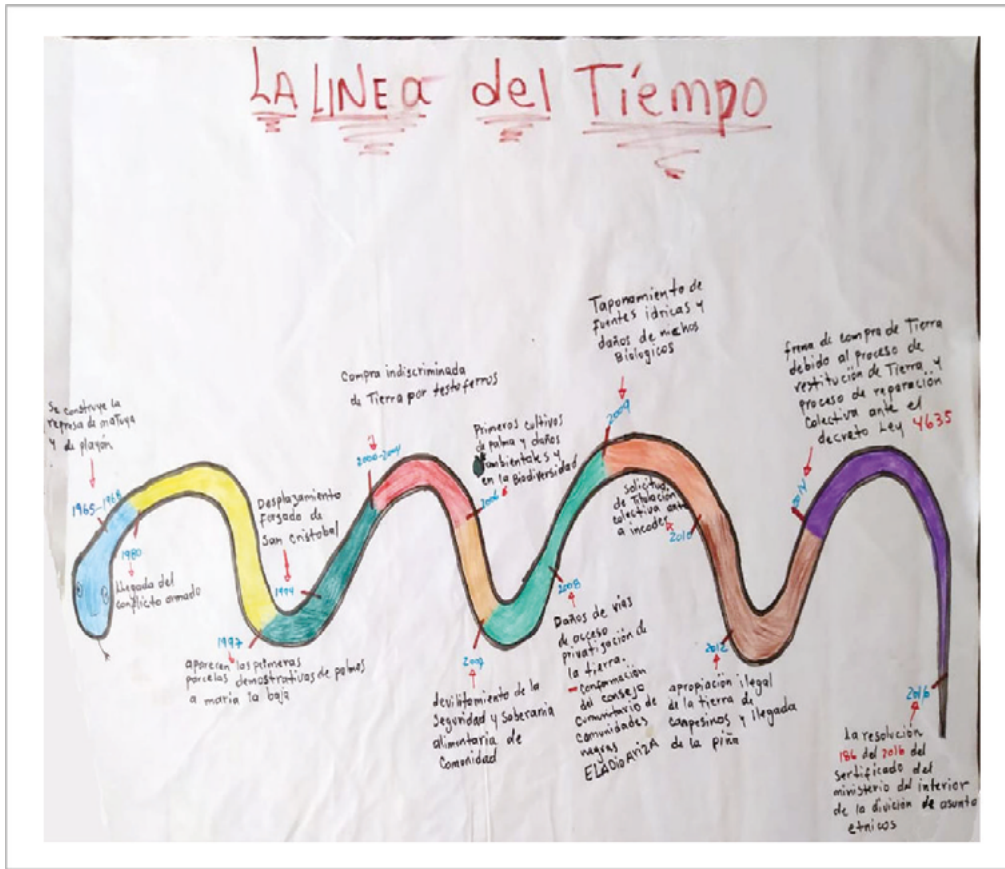 LA LINEA del Tiempo
Se construye la
represa de matuya
y de playón
1965-1968
1980
llegada del
conflicto armado
1997
aparecen las primeras
parcelas demostrativas de palmas
a maria la baja
Desplazamiento
forzado de
San cristobal
Compra indiscriminada
de Tierra por testoferros
2000-2004
Primeros cultivos
de palma y daños
ambientales y
en la Biodiversidad
2006
2007
devilitamiento de la
Seguridad y soberania
alimentaria de
Comunidad
2008
Daños de vias
de acceso
privatización de
la tierra.
- conformación
del consejo
comunitario de
comunidades
negras
ELADIO ARIZA
Taponamiento de
fuentes idricas y
daños de nichos
Biologicos
2009
Solicitud
de Titulación
colectiva ante
a incoder
2010
2012
apropiación ilegal
de la tierra de
campesinos y llegada
de la piña
frena de compra de Tierra
debido al proceso de
restitución de Tierra y
proceso de reparación
Colectiva ante el
decreto Ley 4635
2014
2016
La resolución
186 del 2016 del
sertificado del
ministerio del interior
de la división de asunto
etnicos